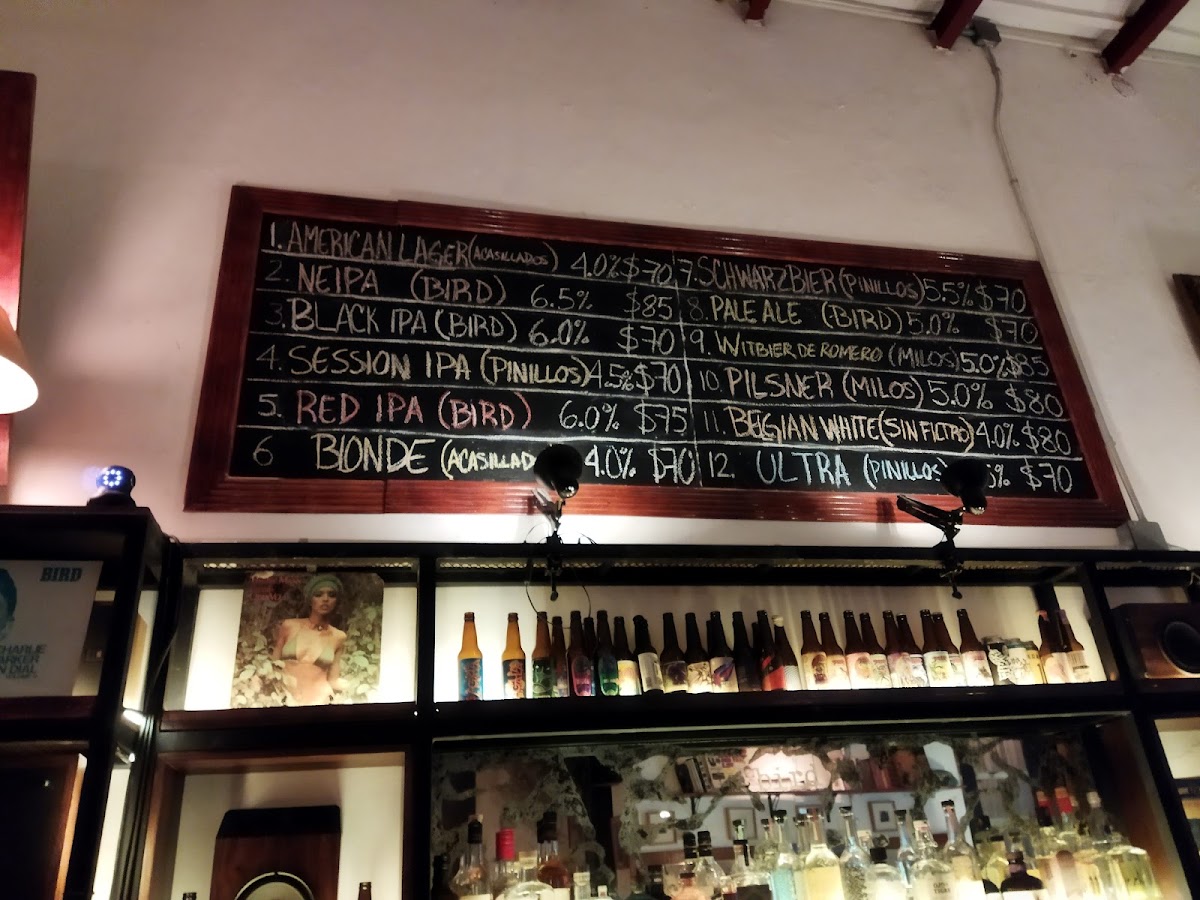 1. AMERICAN LAGER (ACASILLADOS) 4.0% $70
2. NEIPA (BIRD) 6.5% $85
3. BLACK IPA (BIRD) 6.0% $70
4. SESSION IPA (PINILLOS) 4.5% $70
5. RED IPA (BIRD) 6.0% $75
6 BLONDE (ACASILLAD 4.0% $70
7. SCHWARZBIER (PINILLOS) 5.5% $70
8. PALE ALE (BIRD) 5.0% $70
9. WITBIER DE ROMERO (MILOS) 5.0% $85
10. PILSNER (MILOS) 5.0% $80
11. BELGIAN WHITE (SIN FICTRO) 4.0% $80
12. ULTRA (PINILLOS % $70
BIRD
CHARLIE